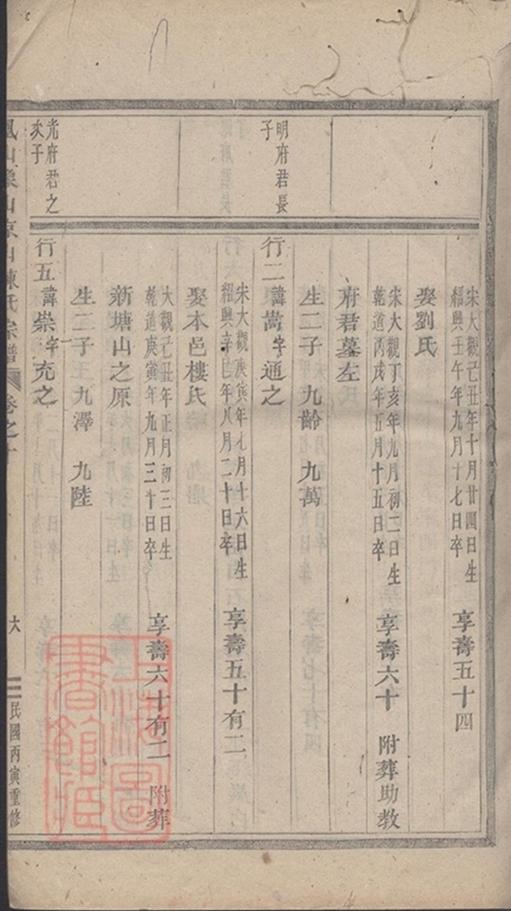 宋大觀己丑年十月廿四日生
紹興壬午年九月十七日卒
享壽五十四
娶劉氏
宋大觀丁亥年九月初二日生
乾道丙戌年五月十五日卒
享壽六十 附葬助教
府君墓左
生二子 九齡 九萬
明府君長
子
行二 諱嵩字通之
宋大觀庚寅年七月十六日生
紹興辛巳年八月二十日卒
享壽五十有二
娶本邑樓氏
大觀己丑年正月初三日生
乾道庚寅年九月三十日卒
享壽六十有二 附葬
新塘山之原
生二子 九澤 九陸
光府君之
次子
行五 諱崇字充之
陳氏宗譜
卷之
六
民國丙寅重修
上海圖
書館